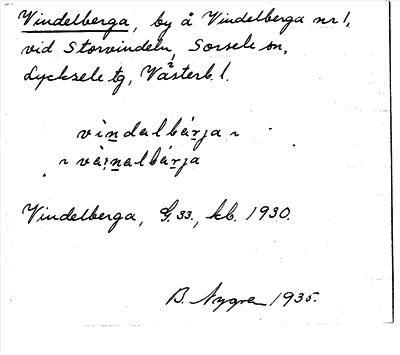 Vindelberga, by å Vindelberga nr 1,
vid Storvindeln, Sorsele sn,
Lycksele tg, Västerb. l.
vìndalbárja ~
~ vàinalbárja
Vindelberga, G. 33, kb. 1930.
B. Nygren 1935.